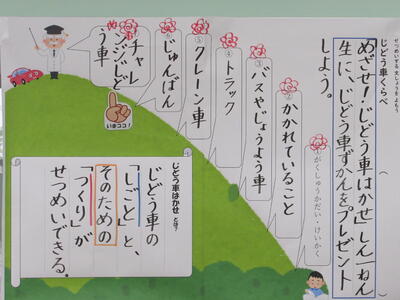 せつめいする 文しょうを よもう
じどう車くらべ
（　　　　　　　　）
「めざせ！じどう車はかせ」しん一ねん
生に、じどう車ずかんをプレゼント
しよう。
① がくしゅうかだい・けいかく
② かかれていること
③ バスやじょうよう車
④ トラック
⑤ クレーン車
⑥ じゅんばん
チャレ
ンジじどう
う車
いまココ！
じどう車はかせ とは？
じどう車の
「しごと」と、
そのための
「つくり」が
せつめいできる。